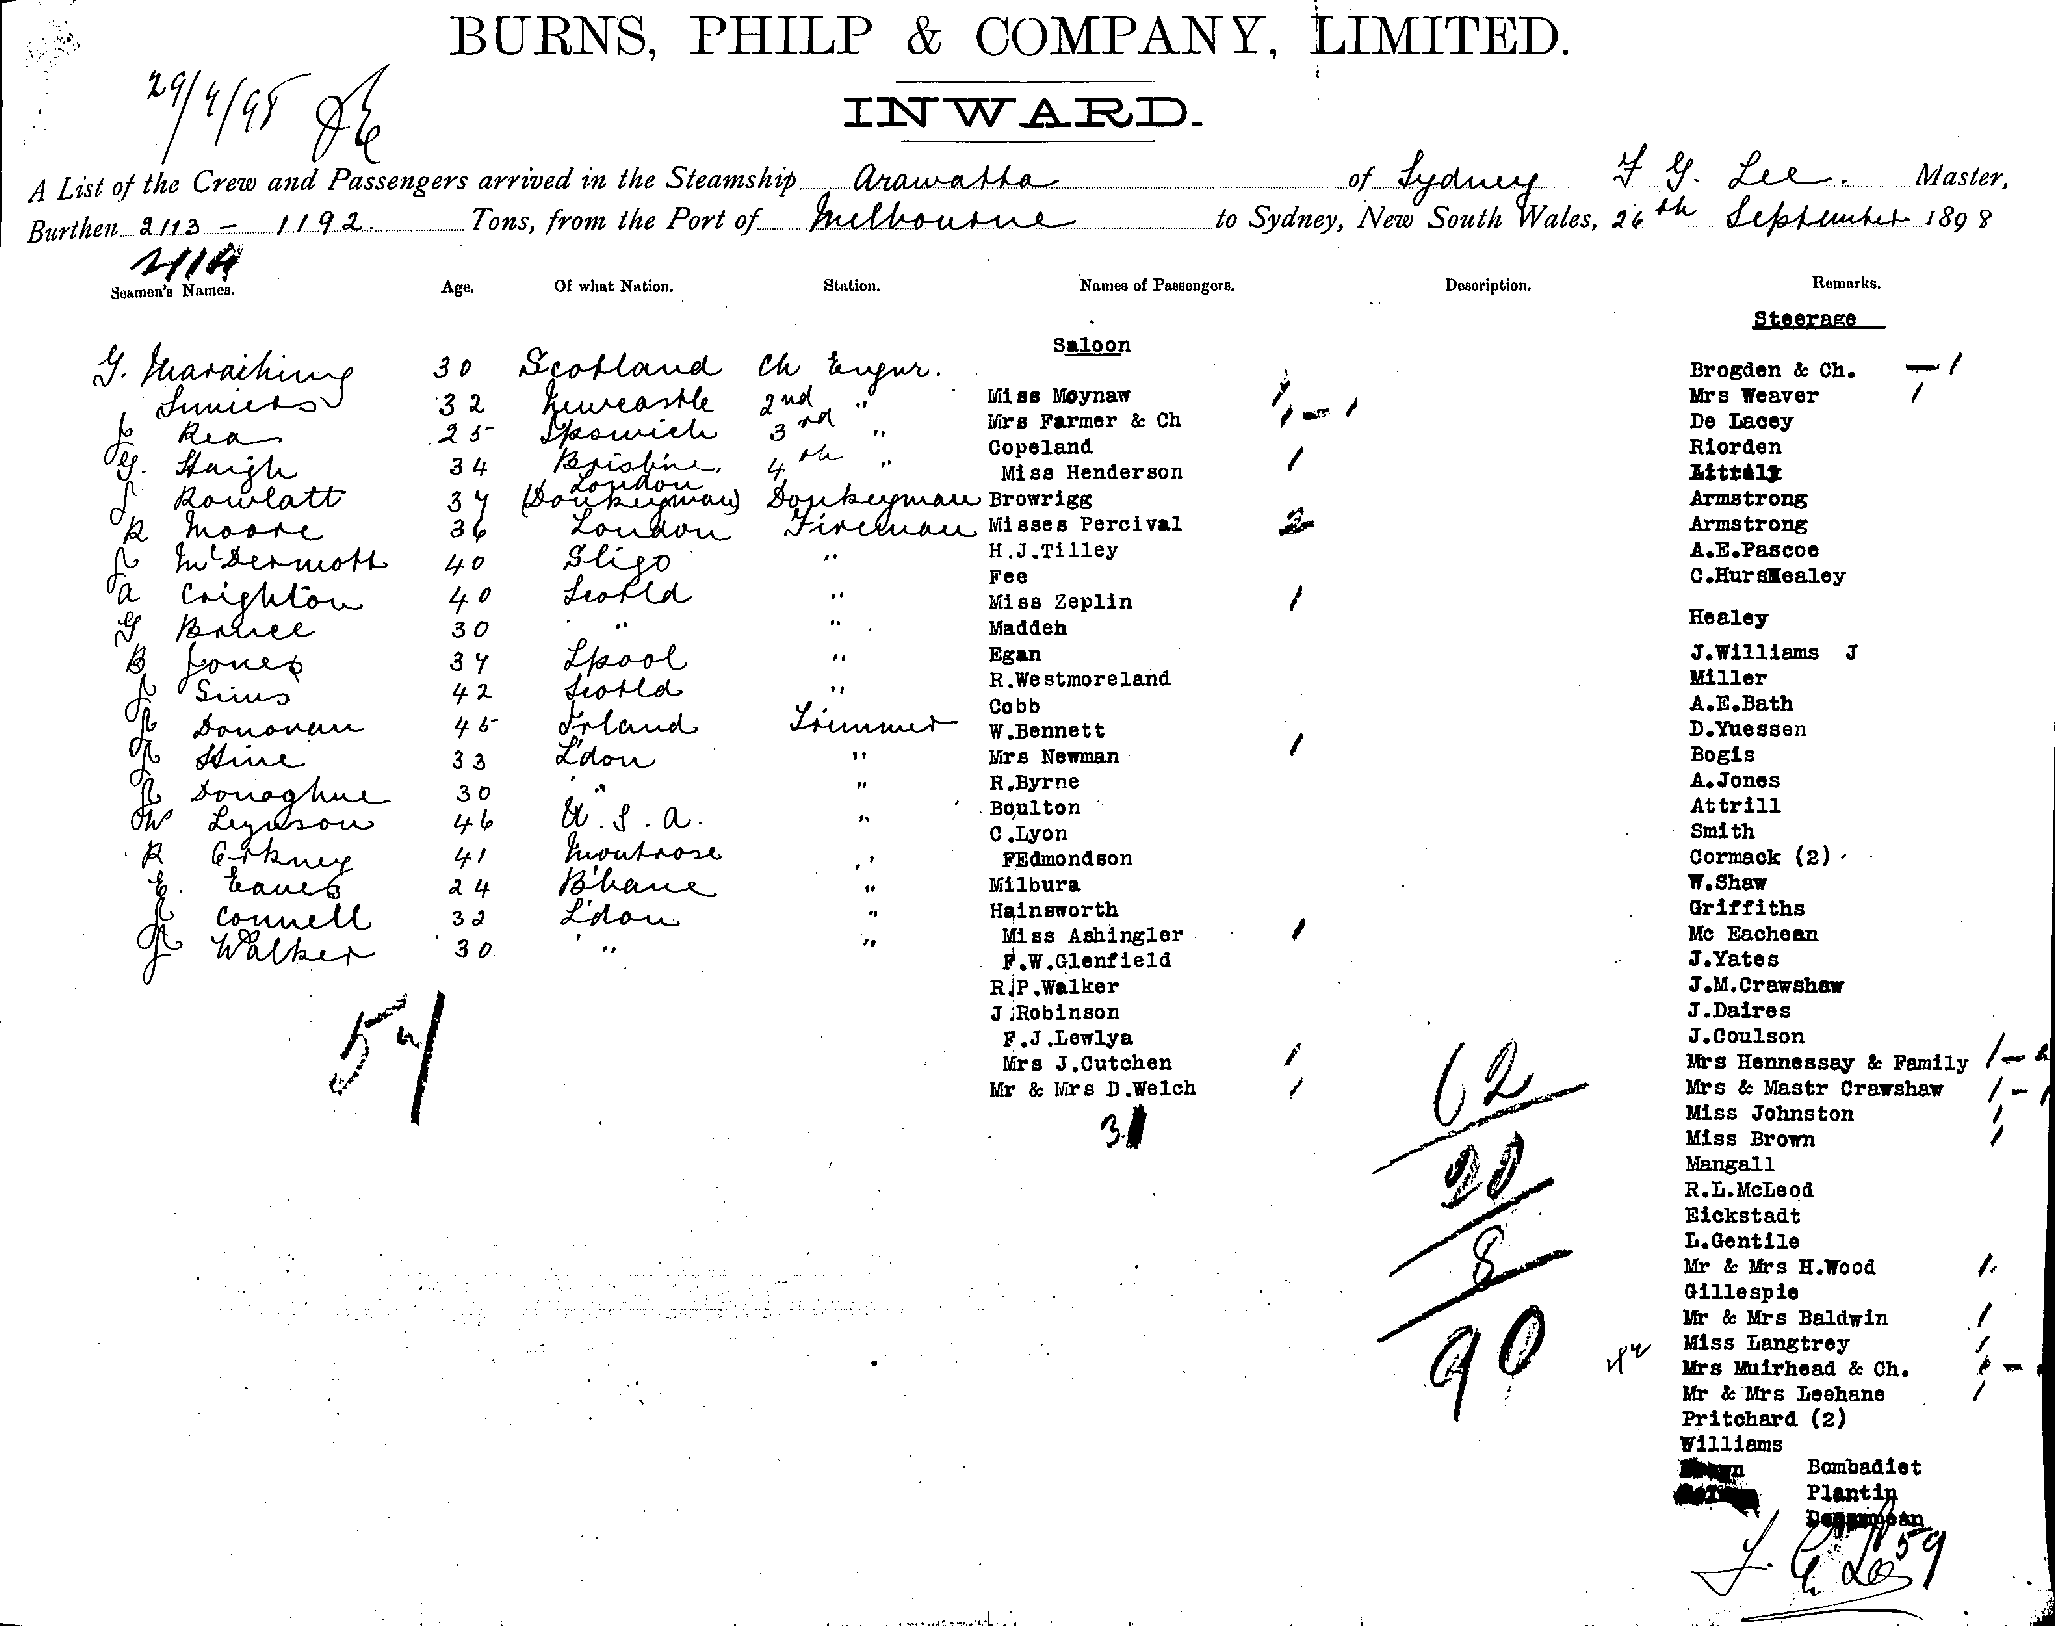 BURNS, PHILP & COMPANY, LIMITED.
29/9/98
INWARD.
A List of the Crew and Passengers arrived in the Steamship Arawatta of Sydney F G. Lee. Master,
Burthen 2113 - 1192. Tons, from the Port of Melbourne to Sydney, New South Wales, 26th September 1898
2114
Seamen's Names. Age. Of what Nation. Station. Names of Passengers. Description. Remarks.
G. 30 Scotland Ch Engnr.
32 Newcastle 2nd "
J Rea 25 Ipswich 3rd "
G. Haigh 34 4th "
London
J Rowlatt 37 (Donkeyman) Donkeyman
R Moore 36 London Fireman
J McDermott 40 Sligo "
A Crighton 40 Scotld "
G Bruce 30 " "
B Jones 37 Lpool "
J Sims 42 Scotld "
J Donovan 45 Irland Trimmer
J Hine 33 L'don "
J Donoghue 30 " "
W 46 U.S.A. "
R Orkney 41 Montrose "
E. Eaves 24 B'bane "
J Connell 32 L'don "
J Walker 30 " "
57
Saloon
Miss Moynaw 1
Mrs Farmer & Ch 1 - 1
Copeland
Miss Henderson 1
Browrigg
Misses Percival 2
H.J.Tilley
Fee
Miss Zeplin 1
Maddeh
Egan
R.Westmoreland
Cobb
W.Bennett
Mrs Newman 1
R.Byrne
Boulton
C.Lyon
FEdmondson
Milbura
Hainsworth
Miss Ashingler 1
F.W.Glenfield
R.P.Walker
J.Robinson
F.J.Lewlya
Mrs J.Cutchen 1
Mr & Mrs D.Welch 1
31
62
20
8
90
Steerage
Brogden & Ch. - 1
Mrs Weaver 1
De Lacey
Riorden
Armstrong
Armstrong
A.E.Pascoe
Healey
J.Williams J
Miller
A.E.Bath
D.Yuessen
Bogis
A.Jones
Attrill
Smith
Cormack (2)
W.Shaw
Griffiths
Mc Eachean
J.Yates
J.M.Crawshaw
J.Daires
J.Coulson
Mrs Hennessay & Family 1 - 2
Mrs & Mastr Crawshaw 1 - 1
Miss Johnston 1
Miss Brown 1
Mangall
R.L.McLeod
Eickstadt
L.Gentile
Mr & Mrs H.Wood 1
Gillespie
Mr & Mrs Baldwin 1
Miss Langtrey 1
Mrs Muirhead & Ch. 1 -
Mr & Mrs Leehane 1
Pritchard (2)
Williams
Bombadiet
Plantin
59
F. G. Lee